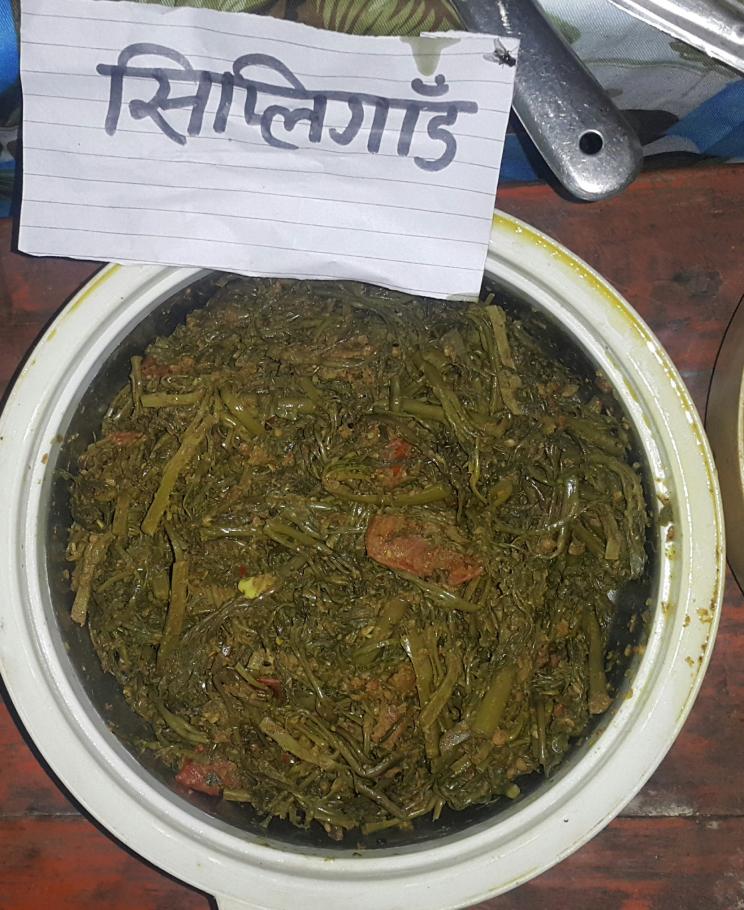 सिप्लिगाँड